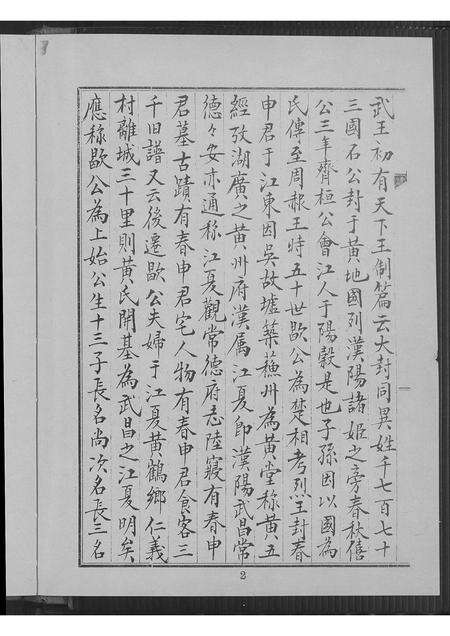 武王初有天下王制篇云大封同異姓千七百七十
三國石公封于黄地國列漢陽諸姬之旁春秋僖
公三年齊桓公會江人于陽穀是也子孫因以國為
氏傳至周赧王時五十世歇公為楚相考烈王封春
申君于江東因吳故墟築蘓州為黄堂称黄五
經攷湖廣之黄州府漢属江夏即漢陽武昌常
德々安亦通称江夏觀常德府志陸寢有春申
君墓古蹟有春申君宅人物有春申君食客三
千旧譜又云後遷歇公夫婦于江夏黄鶴鄉仁義
村離城三十里則黄氏開基為武昌之江夏明矣
應称歇公為上始公生十三子長名尚次名長三名
2